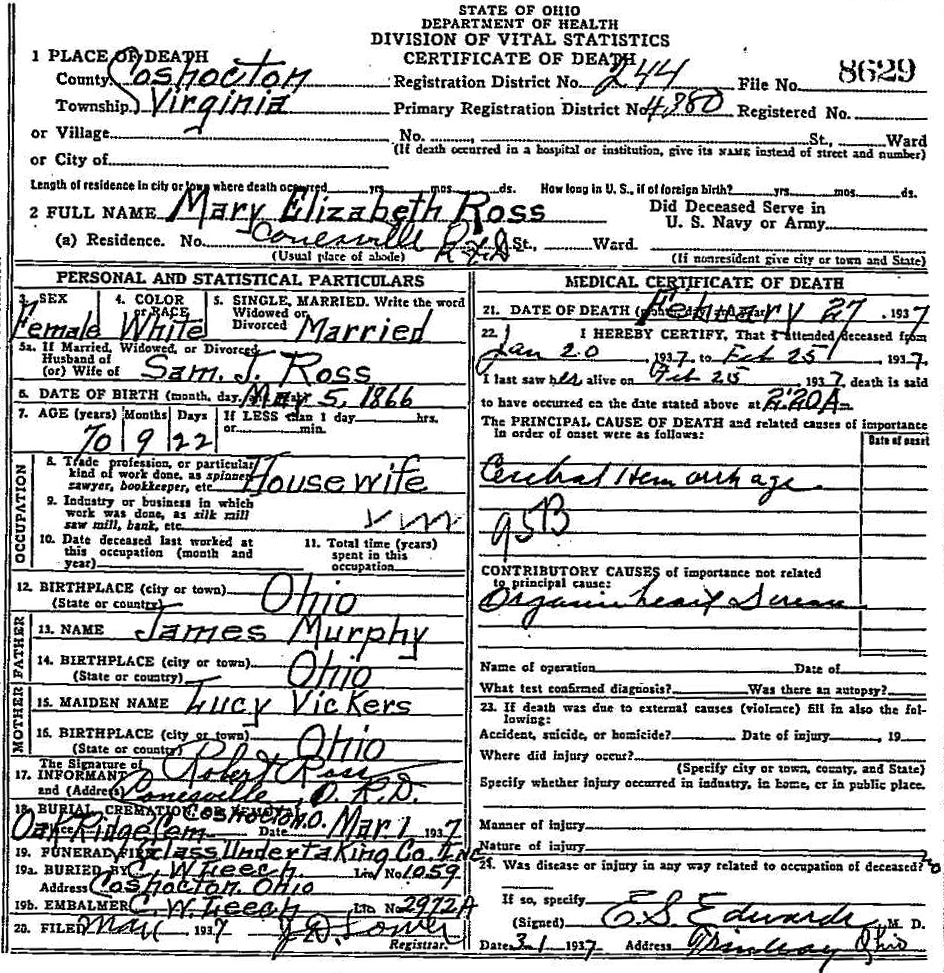 STATE OF OHIO
DEPARTMENT OF HEALTH
DIVISION OF VITAL STATISTICS
CERTIFICATE OF DEATH
8629
1 PLACE OF DEATH
County Coshocton Registration District No. 244 File No.
Township Virginia Primary Registration District No. 4380 Registered No.
or Village No. St., Ward
(If death occurred in a hospital or institution, give its NAME instead of street and number)
or City of
Length of residence in city or town where death occurred yrs. mos. ds. How long in U. S., if of foreign birth? yrs. mos. ds.
2 FULL NAME Mary Elizabeth Ross Did Deceased Serve in U. S. Navy or Army
(a) Residence. No. Conesville R.F.D. St., Ward.
(Usual place of abode) (If nonresident give city or town and State)
PERSONAL AND STATISTICAL PARTICULARS
3. SEX Female 4. COLOR or RACE White 5. SINGLE, MARRIED. Write the word Widowed or Divorced Married
5a. If Married, Widowed, or Divorced
Husband of
(or) Wife of Sam. J. Ross
6. DATE OF BIRTH (month, day, May 5, 1866
7. AGE (years) Months Days If LESS than 1 day hrs.
70 9 22 or min.
OCCUPATION
8. Trade profession, or particular
kind of work done, as spinner
sawyer, bookkeeper, etc. Housewife
9. Industry or business in which
work was done, as silk mill
saw mill, bank, etc.
10. Date deceased last worked at
this occupation (month and
year)
11. Total time (years)
spent in this
occupation
12. BIRTHPLACE (city or town)
(State or country) Ohio
FATHER
13. NAME James Murphy
14. BIRTHPLACE (city or town)
(State or country) Ohio
MOTHER
15. MAIDEN NAME Lucy Vickers
16. BIRTHPLACE (city or town)
(State or country) Ohio
The Signature of
17. INFORMANT Robert Ross
and (Address) Conesville, O. R.D.
18. BURIAL, CREMATION OR REMOVAL Coshocton O.
Place Oak Ridge Cem Date Mar 1 1937
19. FUNERAL FIRM Glass Undertaking Co. Inc
19a. BURIED BY C. W. Leech Lic. No. 1059
Address Coshocton, Ohio
19b. EMBALMER C. W. Leech Lic. No. 2972A
20. FILED Mar 1 1937
Registrar.
MEDICAL CERTIFICATE OF DEATH
21. DATE OF DEATH February 27, 1937
22. I HEREBY CERTIFY, That I attended deceased from
Jan 20, 1937, to Feb 25, 1937.
I last saw her alive on Feb 25, 1937, death is said
to have occurred on the date stated above at 2:20 A.
The PRINCIPAL CAUSE OF DEATH and related causes of importance
In order of onset were as follows:
Date of onset
Cerebral Hemorrhage
95B
CONTRIBUTORY CAUSES of importance not related
to principal cause:
Organic heart disease
Name of operation Date of
What test confirmed diagnosis? Was there an autopsy?
23. If death was due to external causes (violence) fill in also the fol-
lowing:
Accident, suicide, or homicide? Date of injury , 19
Where did injury occur?
(Specify city or town, county, and State)
Specify whether injury occurred in industry, in home, or in public place.
Manner of injury
Nature of injury
24. Was disease or injury in any way related to occupation of deceased? no
If so, specify
(Signed) E.S. Edwards M. D.
Date 3-1 1937 Address Trinway Ohio